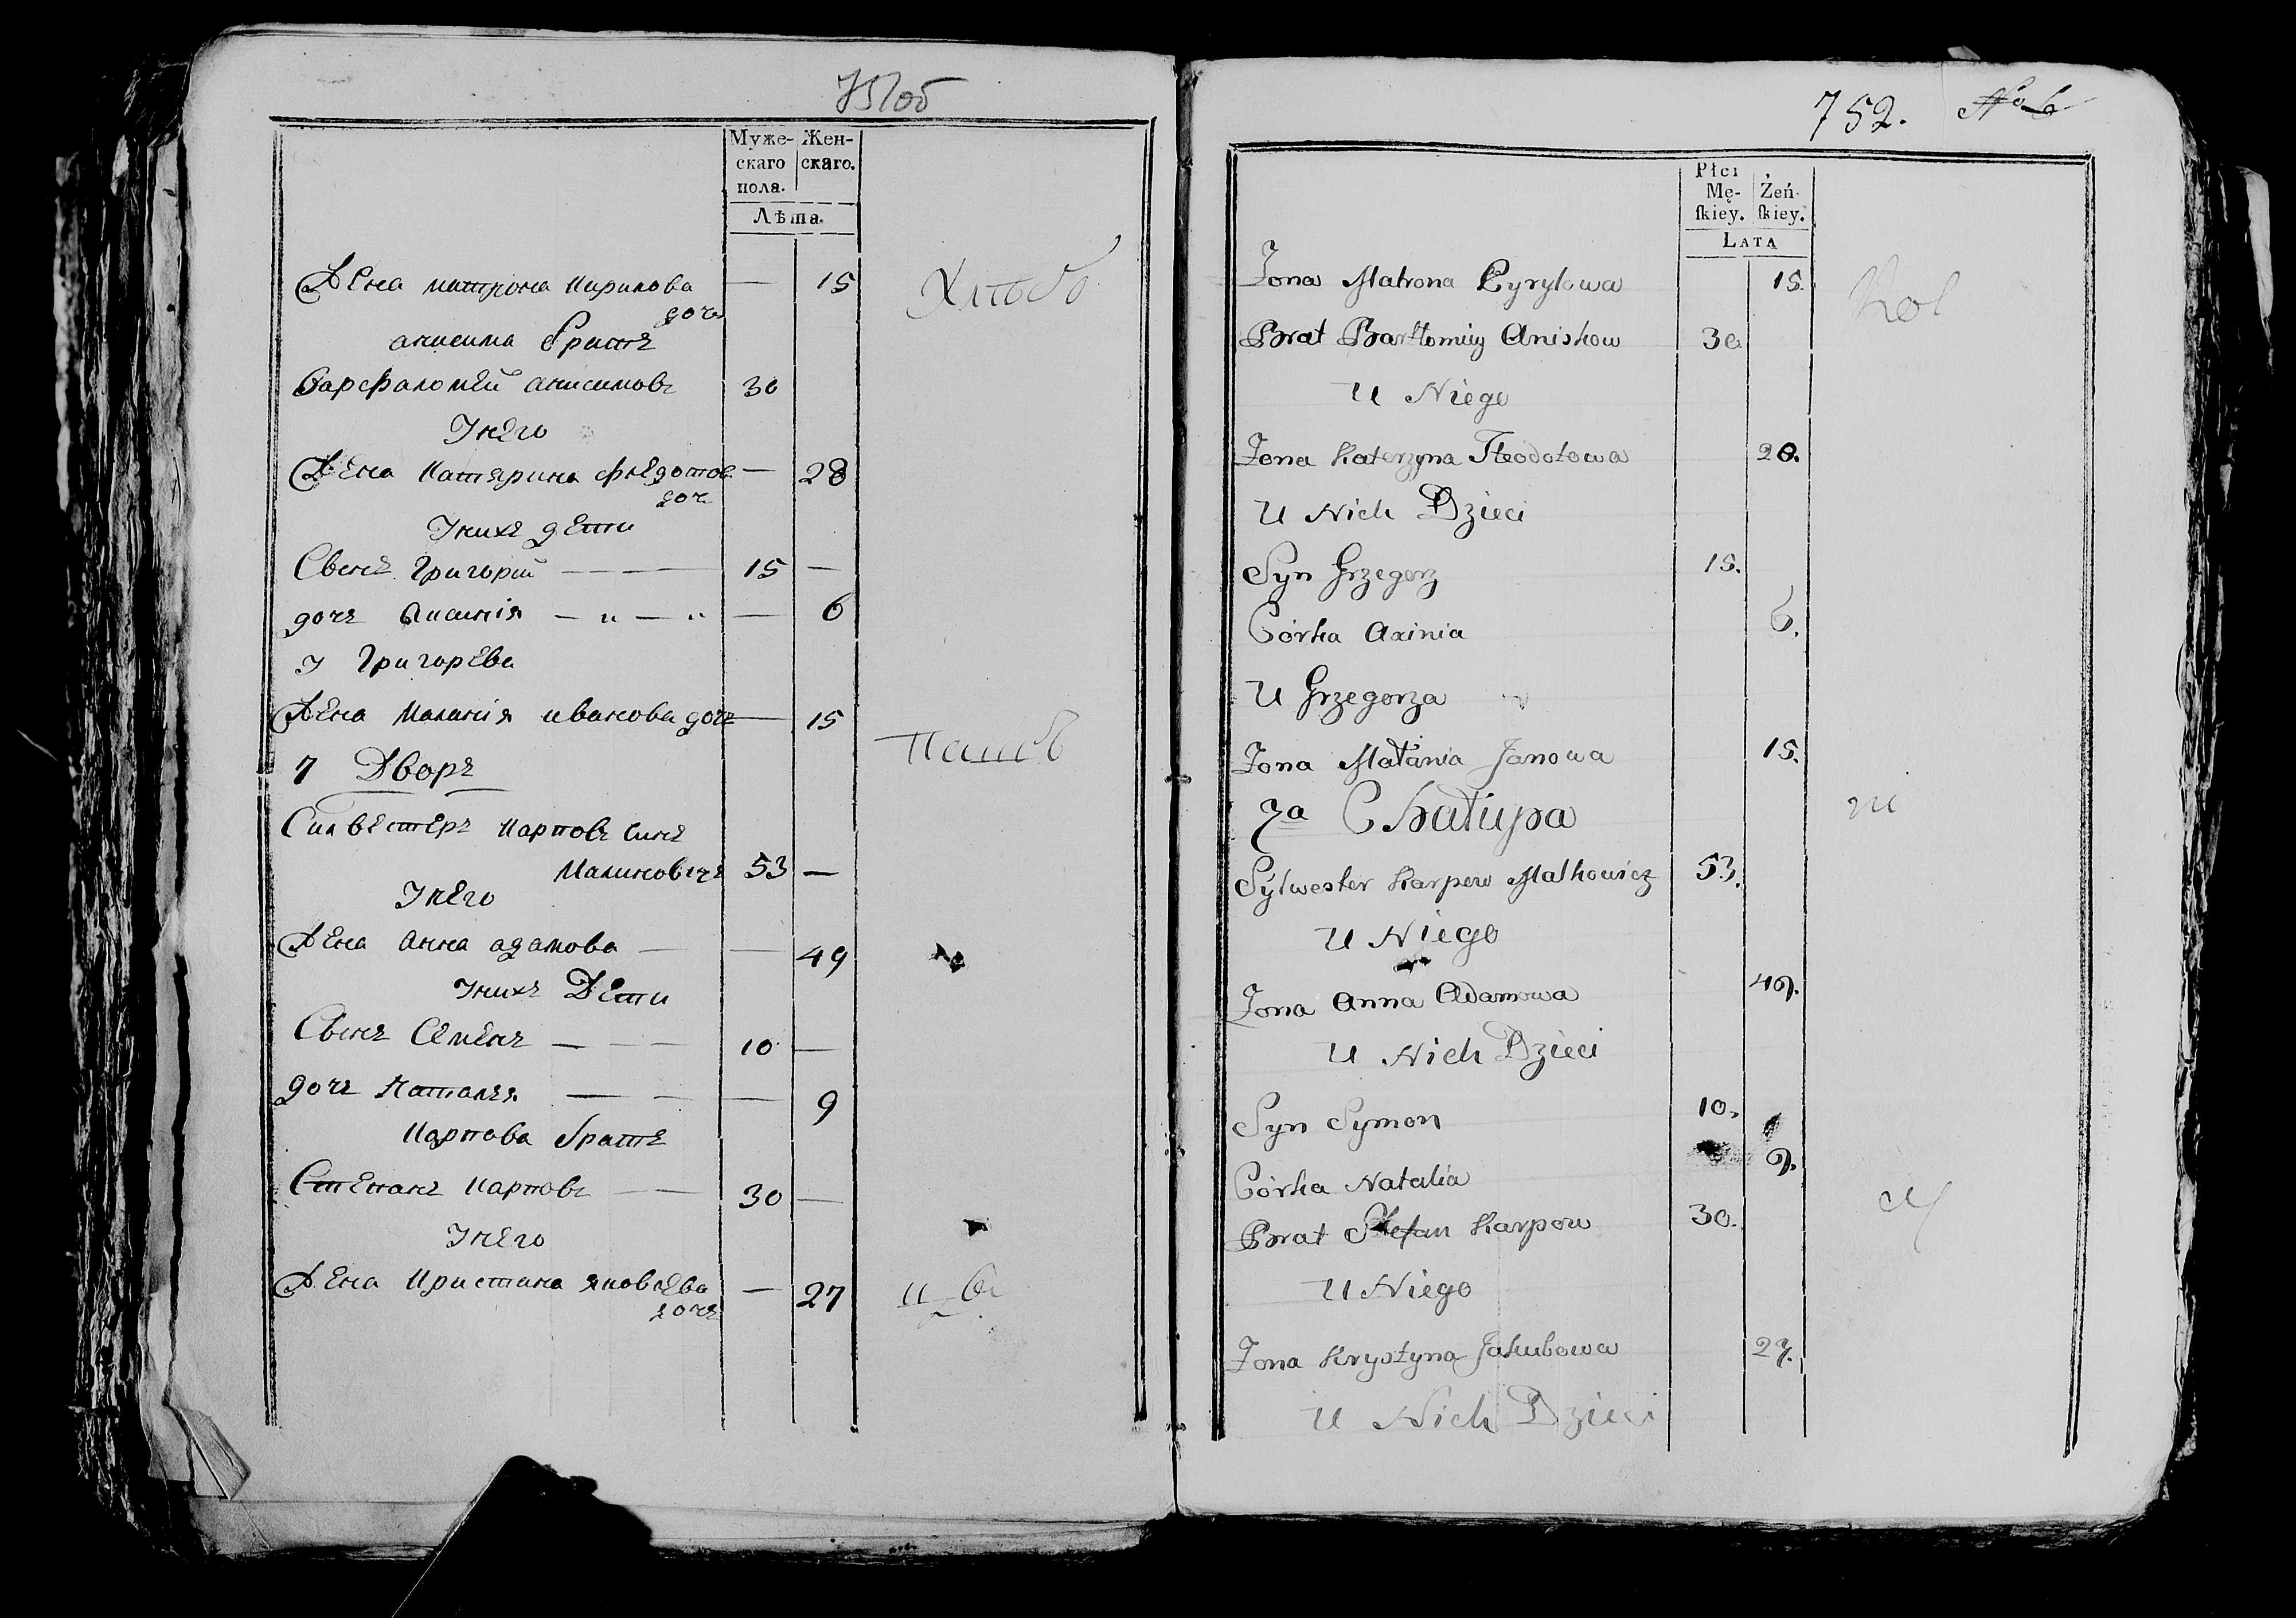 751об
Муже-
скаго
пола.
Жен-
скаго.
Лѣта.
Жена матрона кирилова — 15
дочъ
анисима братъ
Варфаломей анисимовъ 30
У него
Жена Катярина Федотов — 28
доч
У нихъ дети
Сынъ Григорій — — 15 —
дочъ аксинія — „ — „ — 6
У Григорева
Жена Маланія иванова дочъ — 15
7 Дворъ
Силвестеръ Карповъ синъ
Малковичъ 53 —
У него
Жена Анна адамова — — 49
У нихъ Дети
Сынъ Семенъ — — — 10 —
дочъ Наталъя — — — 9
Карпова братъ
Степанъ Карповъ — — 30 —
У него
Жена Кристина яковлева — 27
дочъ
752. No 6
Płci
Mę-
ſkiey.
Żeń-
ſkiey.
LATA
Zona Matrona Cyrylowa 15.
Brat Bartłomiey Aniskow 30
U Niego
Zona Katerzyna Teodotowa 28.
U Nich Dzieci
Syn Grzegorz 15.
Córka Axinia 6.
U Grzegorza
Zona Małania Janowa 15.
7a Chałupa
Sylwester Karpow Malkowicz 53.
U Niego
Zona Anna Adamowa 49.
U Nich Dzieci
Syn Symon 10.
Córka Natalia 9.
Brat Stefan Karpow 30.
U Niego
Zona Krystyna Jakubowa 27.
U Nich Dzieci